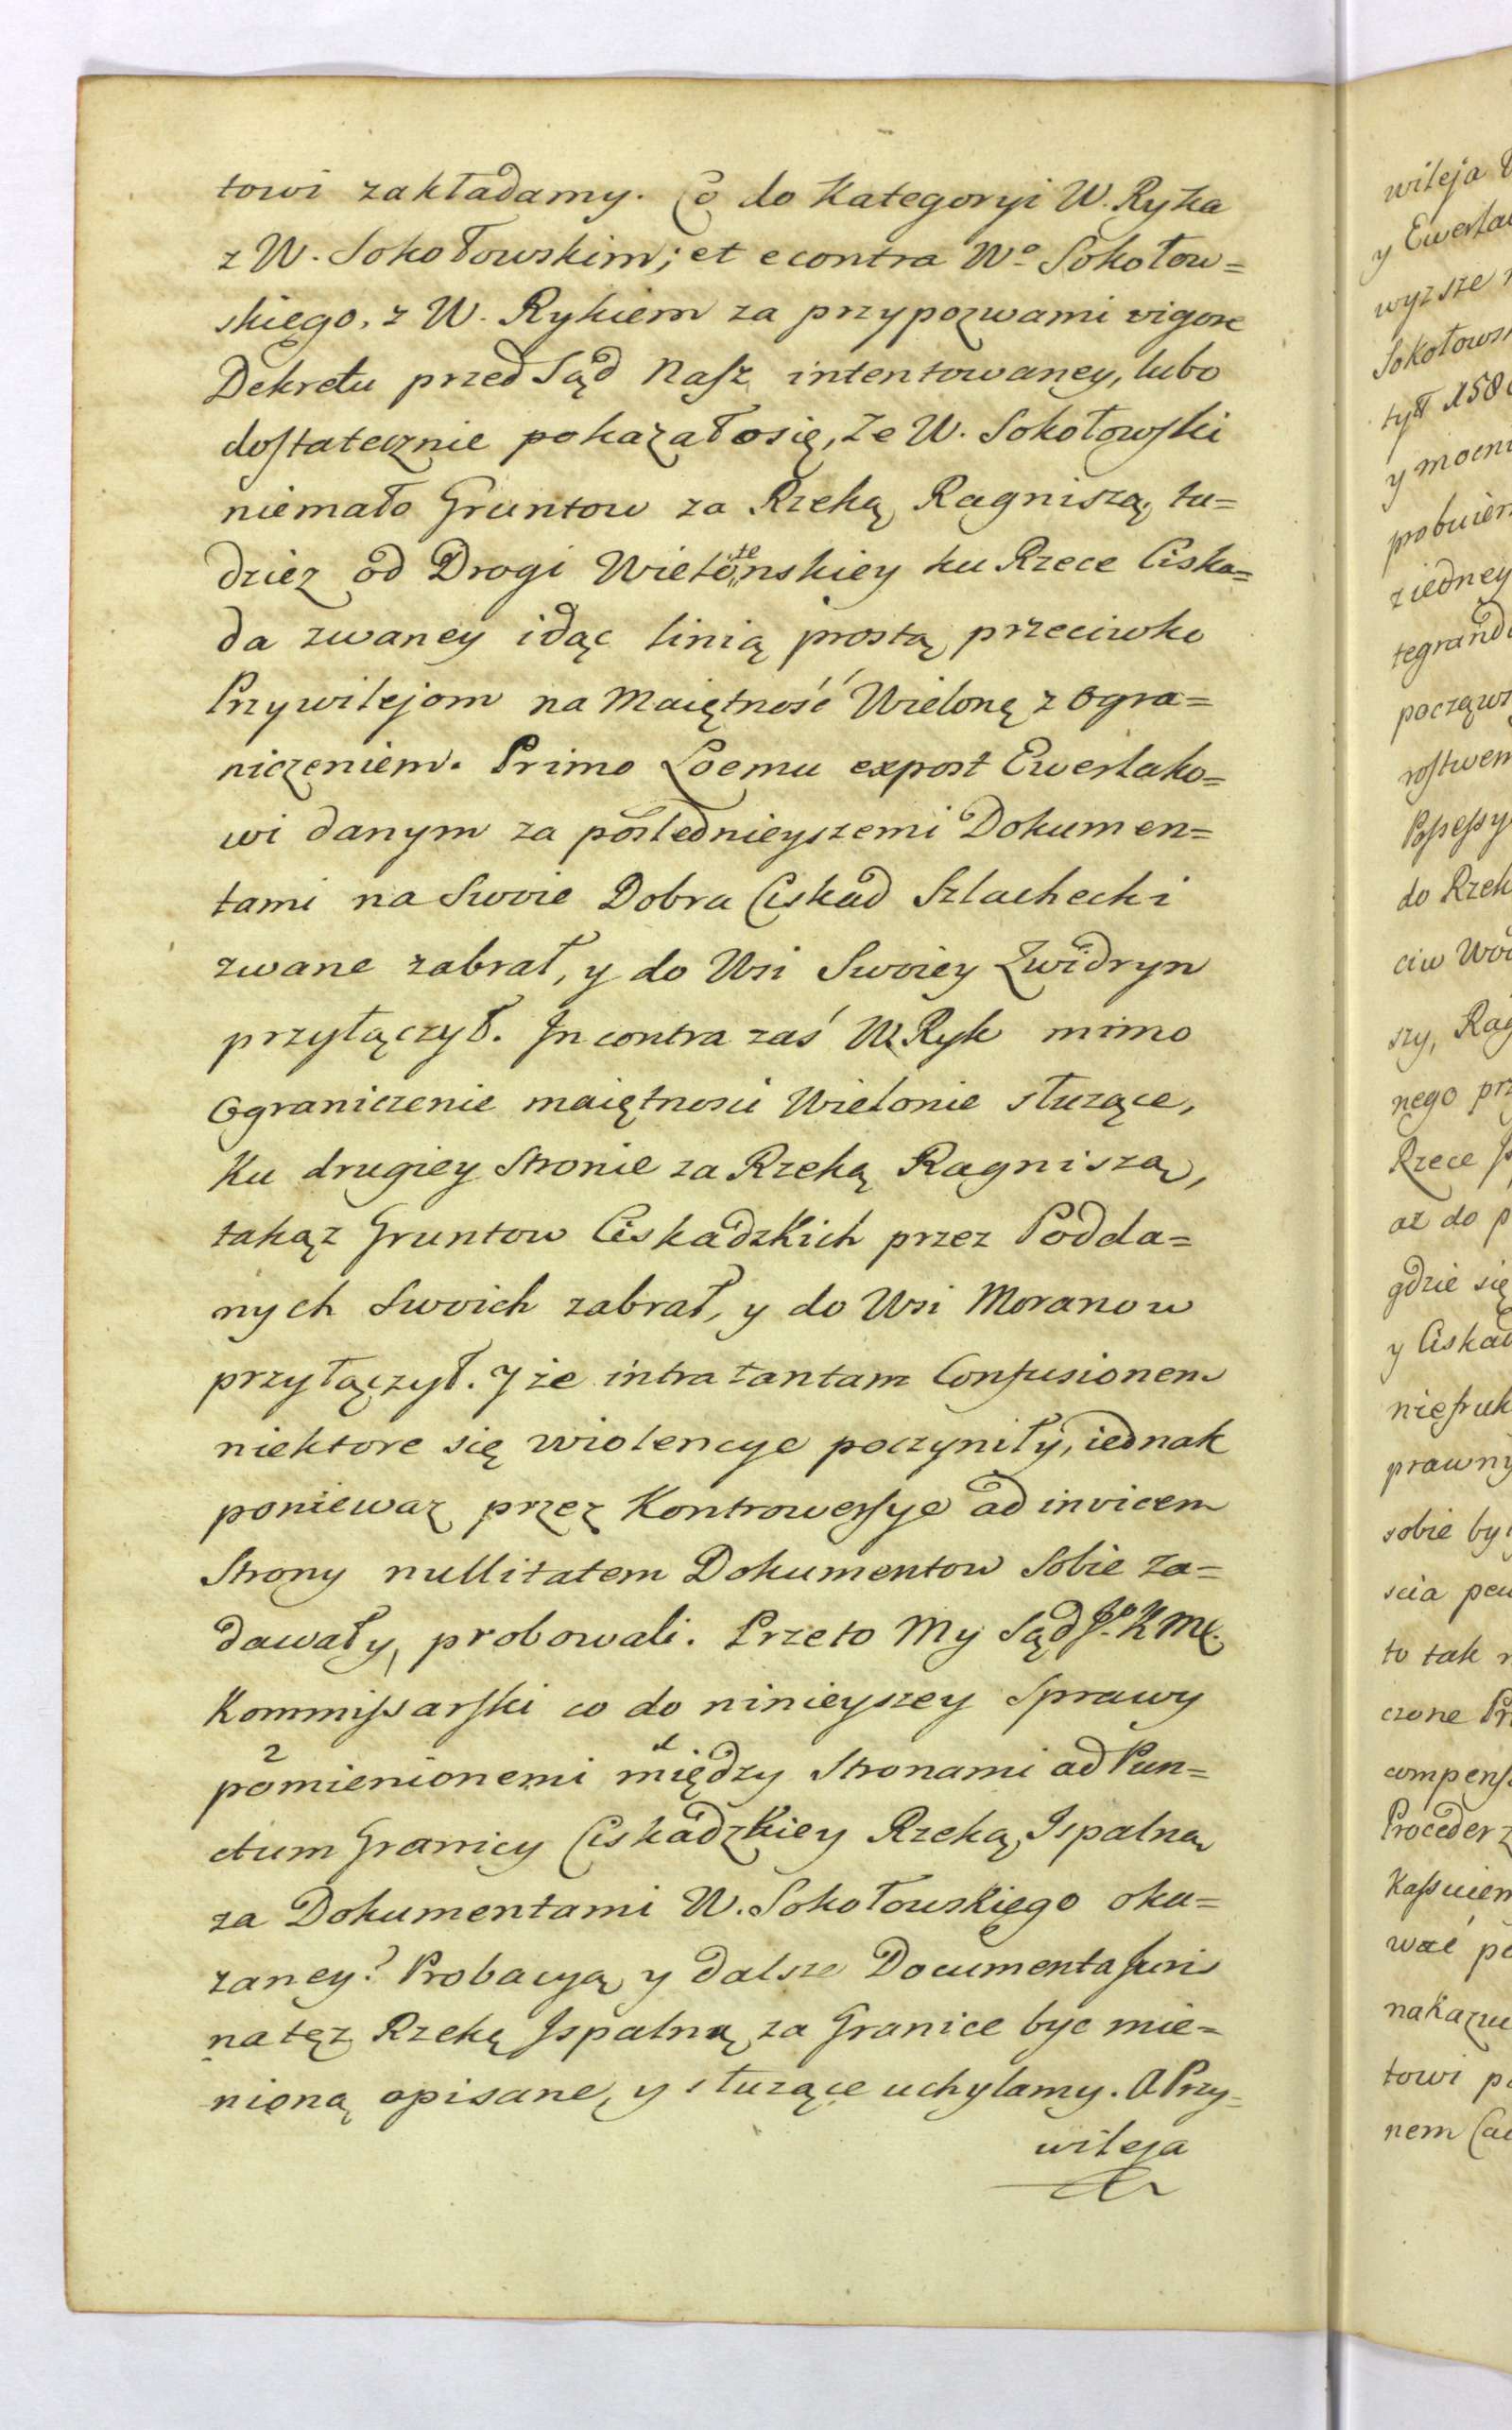 towi zakładamy. Co do Kategoryi W. Ryka
z W. Sokołowskim; et econtra Wo Sokołow=
skiego, z W. Rykiem za przypozwami vigore
Dekretu przed Sąd Nasz intentowaney, lubo
dostatecznie pokazało się, Ze W. Sokołowski
niemało Gruntow za Rzeką Ragniszą, tu=
dziez od Drogi Wielonskiey ku Rzece Ciska=
da zwaney idąc linią prostą przeciwko
Przywilejom na Maiętność Wieloną z ogra=
niczeniem. Primo Loemu expost Ewerlako=
wi danym za poslednieyszemi Dokumen=
tami na Swoie Dobra Ciskad Szlachecki
zwane zabrał, y do Wsi Swoiey Zwidryn
przyłączył. In contra zaś W. Ryk mimo
Ograniczenie maiętnosci Wielonie służące,
Ku drugiey Stronie za Rzeką Ragniszą,
takąz Gruntow Ciskadzkich przez Podda=
nych Swoich zabrał, y do Wsi Moranow
przyłączył. Y że intra tantam Confusionem
niektore się wiolencye poczyniły, iednak
poniewaz przez Kontrowersye ad invicem
Strony nullitatem Dokumentow Sobie Za=
dawały, probowali. Przeto My Sąd Jo K Mci
Kommissarski co do ninieyszey Sprawy
pomienionemi między Stronami ad Pun=
ctum Granicy Ciskadzkiey Rzeką Ispalną
za Dokumentami W. Sokołowskiego oka=
zaney? Probacyą y dalsze Documenta Juris
na tęz Rzekę Ispalną za Granice byc mie=
nioną opisane, y służące uchylamy. A Przy=
wileja
wileja
y Ewerla
wyzsze
Sokołows
tył 158
y mocni
probuie
z iedney
tegrand
począws
rostwem
Possessy
do Rzek
ciw Wo
szy, Rag
nego prz
Rzece
az do p
gdzie się
y Ciskad
prawny
sobie by
scia pew
to tak
czone Pr
compens
Proceder z
wać po
nakazu
towi p
nem Ca